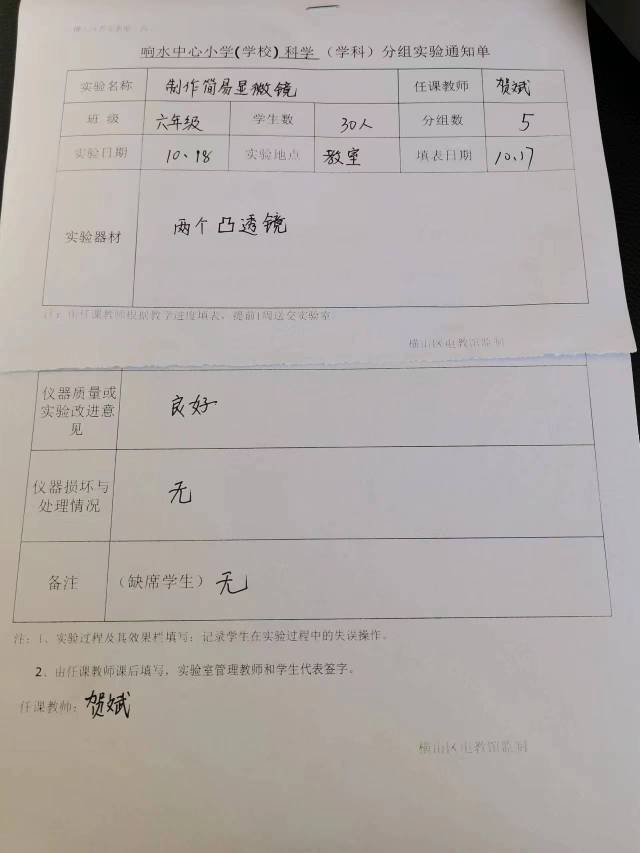 响水中心小学(学校)科学（学科）分组实验通知单
实验名称 制作简易显微镜 任课教师 贺斌
班 级 六年级 学生数 30人 分组数 5
实验日期 10、18 实验地点 教室 填表日期 10.17
实验器材 两个凸透镜
注：由任课教师根据教学进度填表，提前1周送交实验室
横山区电教馆监制
仪器质量或
实验改进意
见
良好
仪器损坏与
处理情况
无
备注 （缺席学生）无
注：1、实验过程及其效果栏填写：记录学生在实验过程中的失误操作。
2、由任课教师课后填写，实验室管理教师和学生代表签字。
任课教师：贺斌
横山区电教馆监制